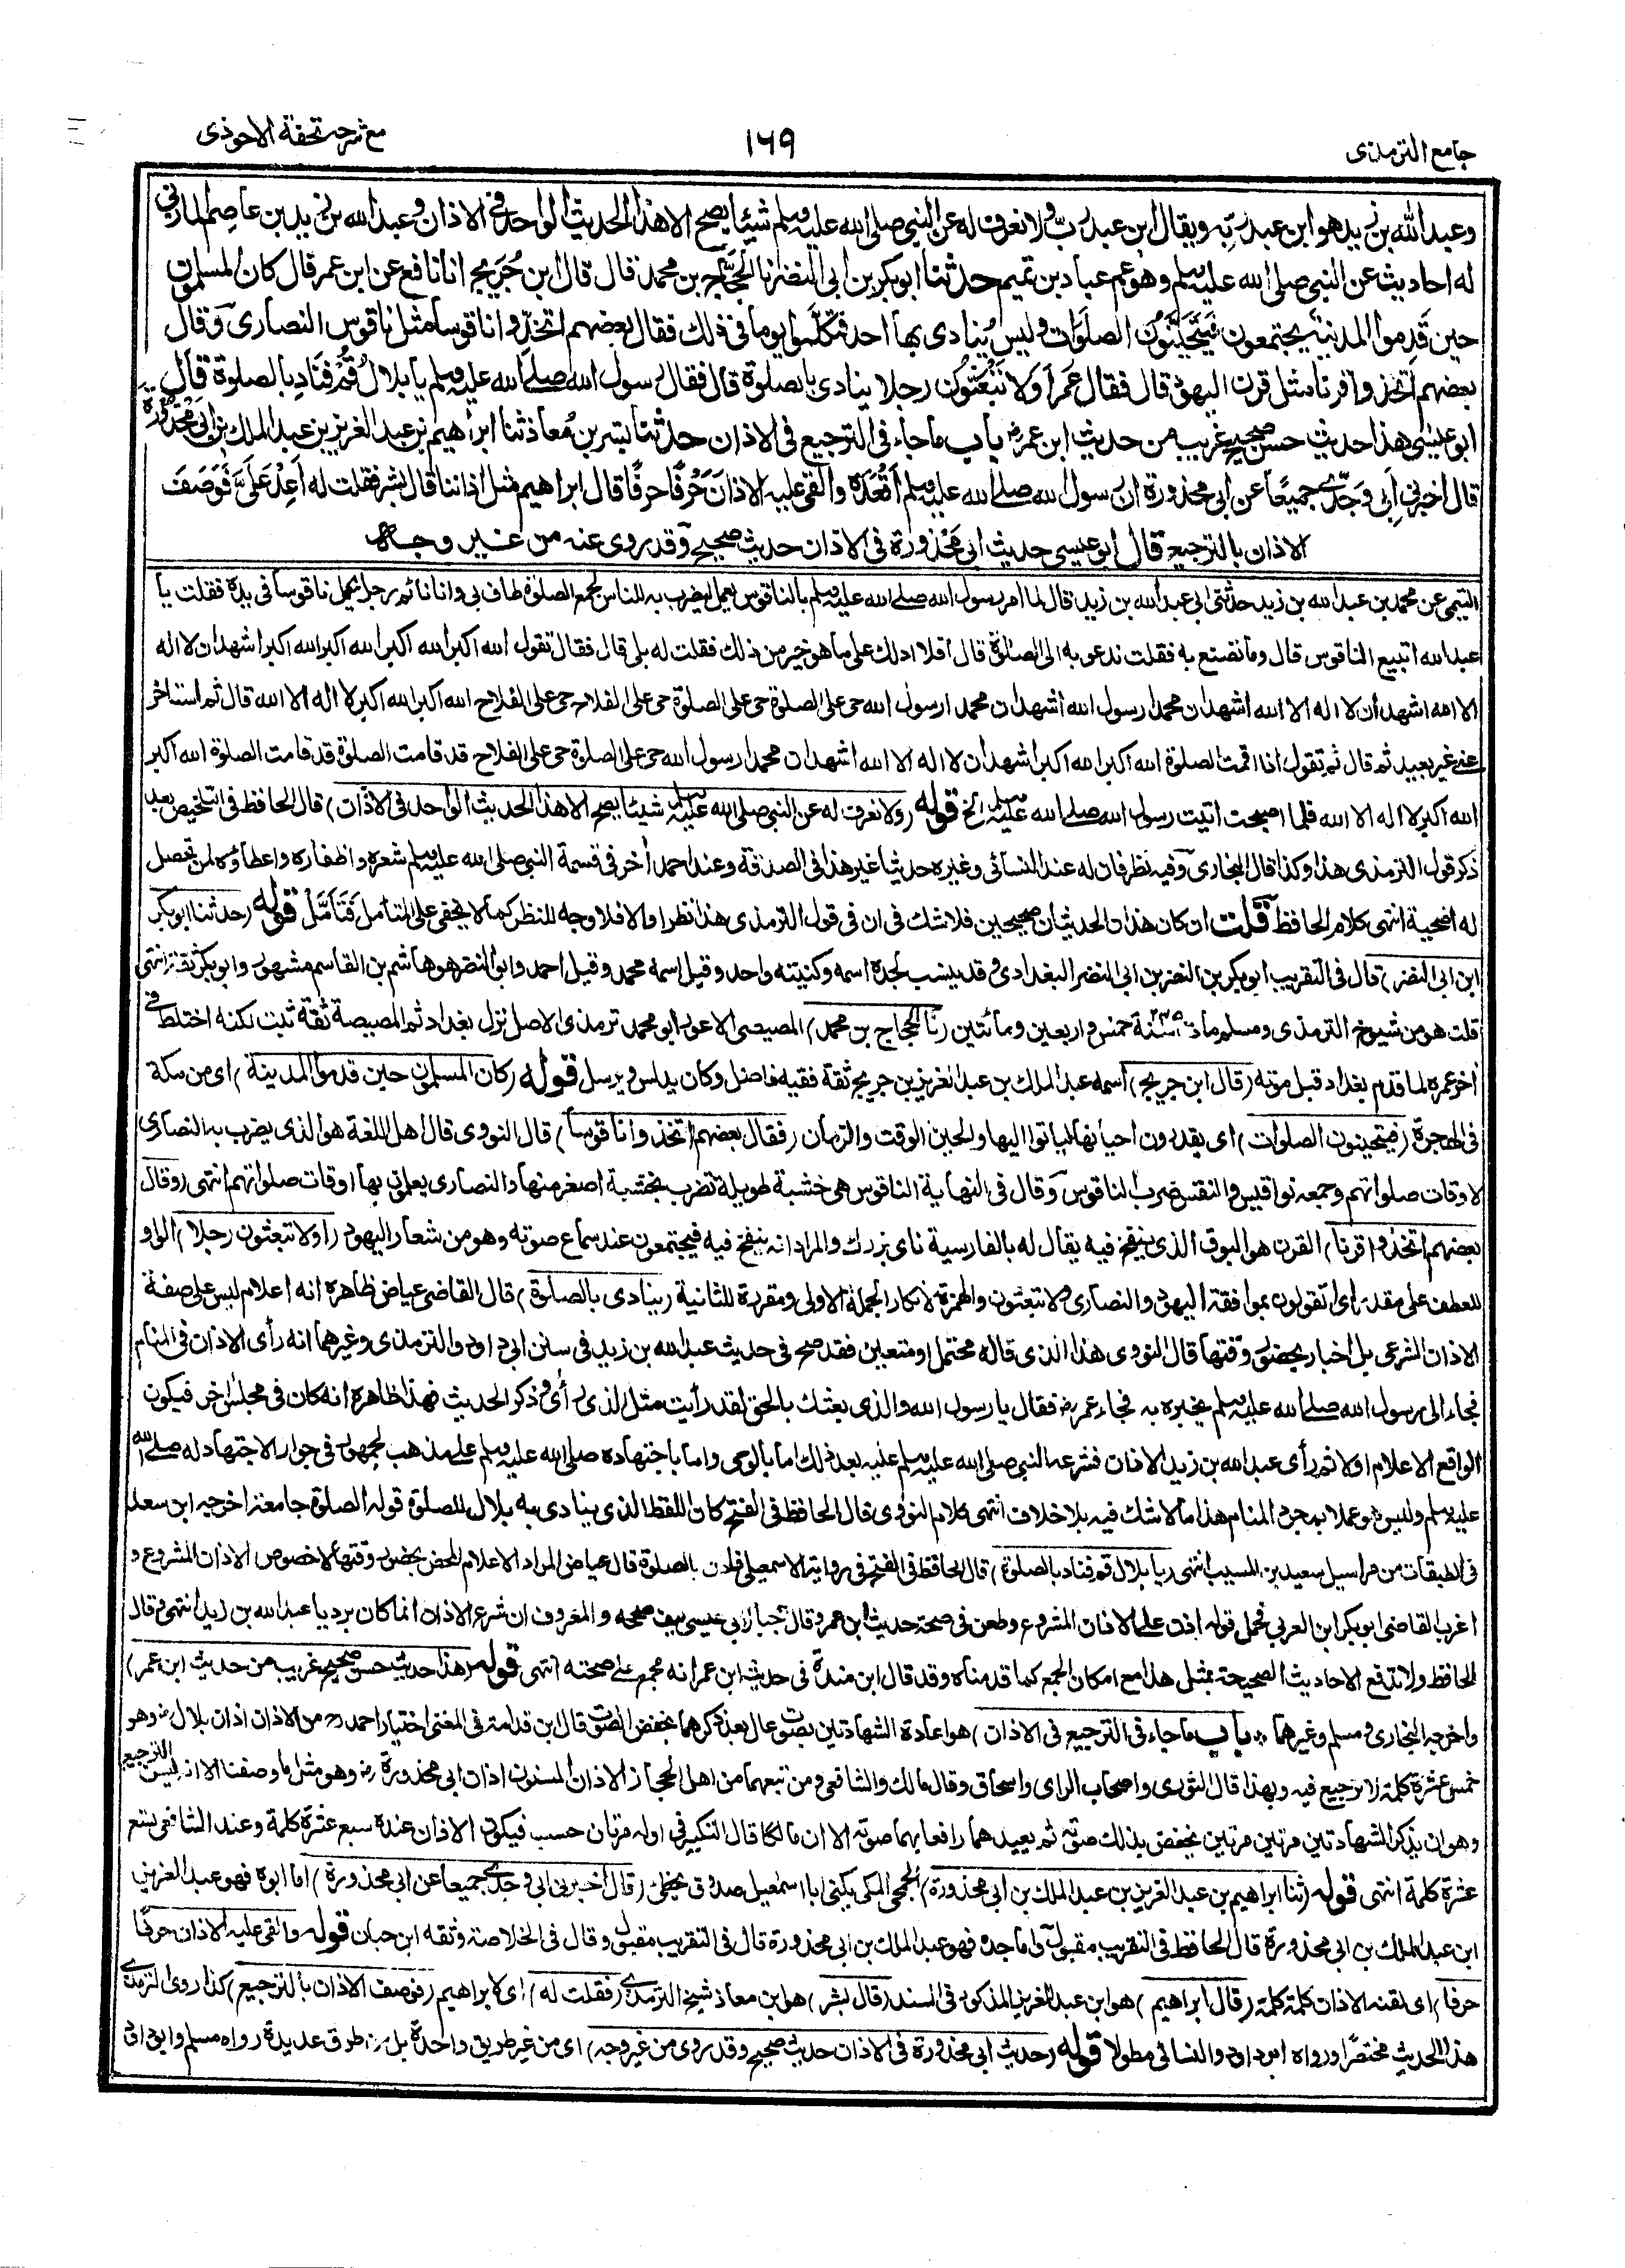 جامع الترمذى
١٦٩
مع شرحه تحفة الاحوذى
وعبد الله بن زيد هو ابن عبد ربه ويقال ابن عبد رب ولا نعرف له عن النبي صلى الله عليه وسلم شيئا يصح الا هذا الحديث الواحد في الاذان وعبد الله بن زيد بن عاصم المازني
له احاديث عن النبي صلى الله عليه وسلم وهو عم عباد بن تميم حدثنا ابو بكر بن ابى النضر نا الحجاج بن محمد قال قال ابن جريج انا نافع عن ابن عمر قال كان المسلمون
حين قدموا المدينة يجتمعون فيتحينون الصلوات وليس ينادى بها احد فتكلموا يوما فى ذلك فقال بعضهم اتخذوا ناقوسا مثل ناقوس النصارى وقال
بعضهم اتخذوا قرنا مثل قرن اليهود قال فقال عمر أولا تبعثون رجلا ينادى بالصلوة قال فقال رسول الله صلى الله عليه وسلم يا بلال قم فناد بالصلوة قال
ابو عيسى هذا حديث حسن صحيح غريب من حديث ابن عمر باب ما جاء فى الترجيع فى الاذان حدثنا بشر بن معاذ ثنا ابراهيم بن عبد العزيز بن عبد الملك بن ابى محذورة
قال اخبرنى ابى وجدى جميعا عن ابى محذورة ان رسول الله صلى الله عليه وسلم اقعده والقى عليه الاذان حرفا حرفا قال ابراهيم مثل اذاننا قال بشر فقلت له اعد على فوصف
الاذان بالترجيع قال ابو عيسى حديث ابى محذورة فى الاذان حديث صحيح وقد روى عنه من غير وجه
التيمى عن محمد بن عبد الله بن زيد حدثنى ابى عبد الله بن زيد قال لما امر رسول الله صلى الله عليه وسلم بالناقوس يعمل ليضرب به للناس لجمع الصلوة طاف بى وانا نائم رجل يحمل ناقوسا فى يده فقلت يا
عبد الله اتبيع الناقوس قال وما تصنع به فقلت ندعو به الى الصلوة قال أفلا ادلك على ما هو خير من ذلك فقلت له بلى قال فقال تقول الله اكبر الله اكبر الله اكبر الله اكبر اشهد ان لا اله
الا الله اشهد ان لا اله الا الله اشهد ان محمدا رسول الله اشهد ان محمدا رسول الله حى على الصلوة حى على الصلوة حى على الفلاح حى على الفلاح الله اكبر الله اكبر لا اله الا الله قال ثم استاخر
عنى غير بعيد ثم قال ثم تقول اذا اقمت الصلوة الله اكبر الله اكبر اشهد ان لا اله الا الله اشهد ان محمدا رسول الله حى على الصلوة حى على الفلاح قد قامت الصلوة قد قامت الصلوة الله اكبر
الله اكبر لا اله الا الله فلما اصبحت اتيت رسول الله صلى الله عليه وسلم الخ قوله (ولا نعرف له عن النبى صلى الله عليه وسلم شيئا يصح الا هذا الحديث الواحد فى الاذان) قال الحافظ فى التلخيص بعد
ذكر قول الترمذى هذا وكذا قال البخارى وفيه نظر فان له عند النسائى وغيره حديثا غير هذا فى الصدقة وعند احمد آخر فى قسمة النبى صلى الله عليه وسلم شعره واظفاره واعطاؤه لمن تحصل
له اضحية انتهى كلام الحافظ قلت ان كان هذان الحديثان صحيحين فلا شك فى ان فى قول الترمذى هذا نظرا والا فلا وجه للنظر كما لا يخفى على المتأمل فتأمل قوله (حدثنا ابو بكر
ابن ابى النضر) قال فى التقريب ابو بكر بن النضر بن ابى النضر البغدادى وقد ينسب لجده اسمه وكنيته واحد وقيل اسمه محمد وقيل احمد وابو النضر هو هاشم بن القاسم مشهور وابو بكر ثقة انتهى
قلت هو من شيوخ الترمذى ومسلم مات سنة ٢٤٥ خمس واربعين ومائتين (نا الحجاج بن محمد) المصيصى الاعور ابو محمد ترمذى الاصل نزل بغداد ثم المصيصة ثقة ثبت لكنه اختلط فى
آخر عمره لما قدم بغداد قبل موته (قال ابن جريج) اسمه عبد الملك بن عبد العزيز بن جريج ثقة فقيه فاضل وكان يدلس ويرسل قوله (كان المسلمون حين قدموا المدينة) اى من مكة
فى الهجرة (فيتحينون الصلوات) اى يقدرون احيانها ليأتوا اليها والحين الوقت والزمان (فقال بعضهم اتخذوا ناقوسا) قال النووى قال اهل اللغة هو الذى يضرب به النصارى
لاوقات صلواتهم وجمعه نواقيس والنقس ضرب الناقوس وقال فى النهاية الناقوس هى خشبة طويلة تضرب بخشبة اصغر منها والنصارى يعلمون بها اوقات صلواتهم انتهى (وقال
بعضهم اتخذوا قرنا) القرن هو البوق الذى ينفخ فيه يقال له بالفارسية ناى بزرك والمراد انه ينفخ فيه فيجتمعون عند سماع صوته وهو من شعار اليهود (أولا تبعثون رجلا) الواو
للعطف على مقدر اى اتقولون بموافقة اليهود والنصارى ولا تبعثون والهمزة لانكار الجملة الاولى ومقررة للثانية (ينادى بالصلوة) قال القاضى عياض ظاهره انه اعلام ليس على صفة
الاذان الشرعى بل اخبار بحضور وقتها قال النووى هذا الذى قاله محتمل او متعين فقد صح فى حديث عبد الله بن زيد فى سنن ابى داود والترمذى وغيرهما انه رأى الاذان فى المنام
فجاء الى رسول الله صلى الله عليه وسلم يخبره به فجاء عمر رض فقال يا رسول الله والذى بعثك بالحق لقد رأيت مثل الذى رأى وذكر الحديث فهذا ظاهره انه كان فى مجلس آخر فيكون
الواقع الاعلام اولا ثم رأى عبد الله بن زيد الاذان فشرعه النبى صلى الله عليه وسلم بعد ذلك اما بالوحى واما باجتهاده صلى الله عليه وسلم على مذهب الجمهور فى جواز الاجتهاد له صلى الله
عليه وسلم وليس هو عملا بمجرد المنام هذا ما لا شك فيه بلا خلاف انتهى كلام النووى قال الحافظ فى الفتح كان اللفظ الذى ينادى به بلال للصلوة قوله الصلوة جامعة اخرجه ابن سعد
فى الطبقات من مراسيل سعيد بن المسيب انتهى (يا بلال قم فناد بالصلوة) قال الحافظ فى الفتح فى رواية الاسمعيلى فاذن بالصلوة قال عياض المراد الاعلام المحض بحضور وقتها لا خصوص الاذان المشروع و
اغرب القاضى ابو بكر ابن العربى فحمل قوله اذن على الاذان المشروع وطعن فى صحة حديث ابن عمر وقال عجبا لابى عيسى كيف صححه والمعروف ان شرع الاذان انما كان برويا عبد الله بن زيد انتهى وقال
الحافظ ولا تدفع الاحاديث الصحيحة بمثل هذا مع امكان الجمع كما قدمناه وقد قال ابن مندة فى حديث ابن عمر انه مجمع على صحته انتهى قوله (هذا حديث حسن صحيح غريب من حديث ابن عمر)
واخرجه البخارى ومسلم وغيرهما باب ما جاء فى الترجيع فى الاذان) هو اعادة الشهادتين بصوت عال بعد ذكرهما بخفض الصوت قال ابن قدامة فى المغنى اختيار احمد رح من الاذان اذان بلال رض وهو
خمس عشرة كلمة لا ترجيع فيه وبهذا قال الثورى واصحاب الراى واسحاق وقال مالك والشافعى ومن تبعهما من اهل الحجاز الاذان المسنون اذان ابى محذورة رض وهو مثل ما وصفنا الا انه يسن الترجيع
وهو ان يذكر الشهادتين مرتين مرتين يخفض بذلك صوته ثم يعيدهما رافعا بهما صوته الا ان مالكا قال التكبير فى اوله مرتان حسب فيكون الاذان عنده سبع عشرة كلمة وعند الشافعى تسع
عشرة كلمة انتهى قوله (ثنا ابراهيم بن عبد العزيز بن عبد الملك بن ابى محذورة) الجمحى المكى يكنى ابا اسمعيل صدوق يخطئ (قال اخبرنى ابى وجدى جميعا عن ابى محذورة) اما ابوه فهو عبد العزيز
ابن عبد الملك بن ابى محذورة قال الحافظ فى التقريب مقبول واما جده فهو عبد الملك بن ابى محذورة قال فى التقريب مقبول وقال فى الخلاصة وثقه ابن حبان قوله والقى عليه الاذان حرفا
حرفا) اى لقنه الاذان كلمة كلمة (قال ابراهيم) هو ابن عبد العزيز المذكور فى السند (قال بشر) هو ابن معاذ شيخ الترمذى (فقلت له) اى لابراهيم (فوصف الاذان بالترجيع) كذا روى الترمذى
هذا الحديث مختصرا ورواه ابو داود والنسائى مطولا قوله (حديث ابى محذورة فى الاذان حديث صحيح وقد روى من غير وجه) اى من غير طريق واحدة بل من طرق عديدة رواه مسلم وابو داود